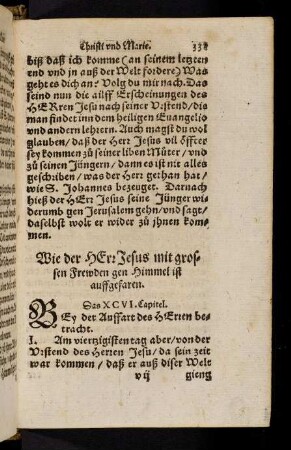 Christi vnd Marie.
biß daß ich komme (an seinem letzten
end vnd in auß der Welt fordere) Was
geht es dich an? Volg du mir nach. Das
seind nun die ailff Erscheinungen des
HERren Jesu nach seiner Vrstend / die
man findet inn dem heiligen Euangelio
vnd andern lehrern. Auch magst du wol
glauben / daß der Herr Jesus vil öffter
sey kommen zu seiner liben Můter / vnd
zu seinen Jüngern / dann es ist nit alles
geschriben / was der Herr gethan hat /
wie S. Johannes bezeuget. Darnach
hieß der HErr Jesus seine Jünger wi
derumb gen Jerusalem gehn / vnd sagt /
daselbst wolt er wider zu jhnen kom-
men.
Wie der HErr Jesus mit gros-
sen Frewden gen Himmel ist
auffgefaren.
Das XCVI. Capitel.
BEy der Auffart des HErren be-
tracht.
I. Am viertzigisten tag aber / von der
Vrstend des Herren Jesu / da sein zeit
war kommen / daß er auß diser Welt
gieng